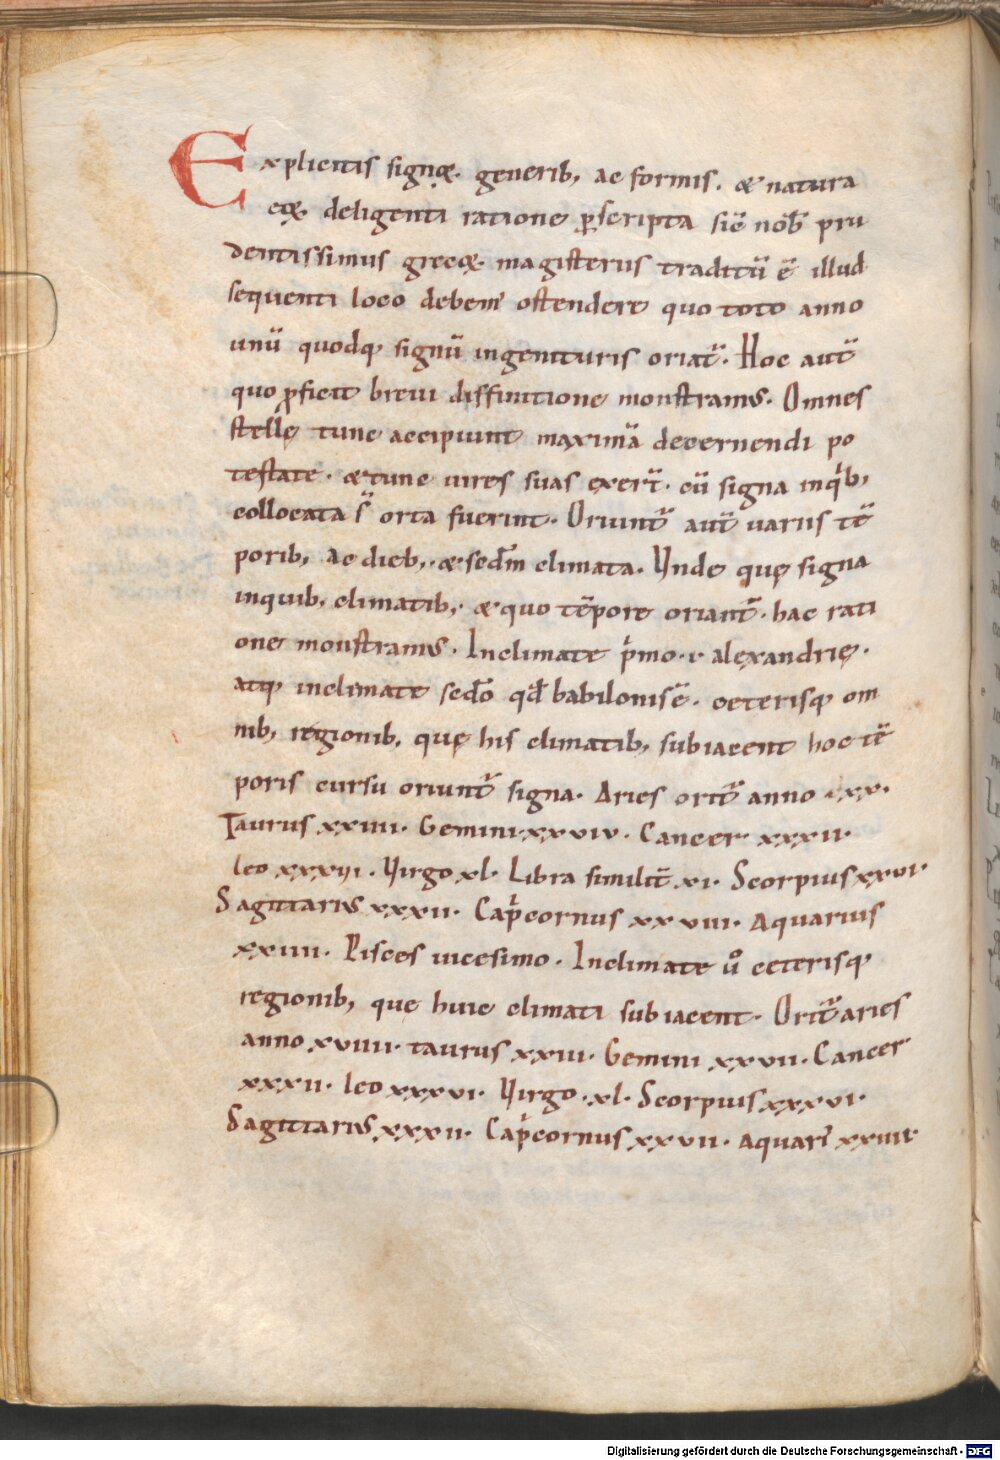 Explicitis signoꝝ. generib; ac formis. & natura
eoꝝ deligenti ratione ꝑscripta sic̄ nob̄ pru
dentissimus grecoꝝ magisterus traditū ē illud
sequenti loco debem᾽ ostendere quo toto anno
unū quodq; signū ingenituris oriat᷑. Hoc aut̄
quo ꝓficit brevi diffinitione monstramus. Omnes
stellę tunc accipiunt maximā decernendi po
testate. &tunc vires suas exert᷑. cū signa inqͥb;
collocata s̄ orta fuerint. Oriunt᷑ aut̄ variis tē
porib; ac dieb;. &secdm̄ climata. Unde quę signa
inquib; climatib;. & quo tēpore oriant᷑. hac rati
one monstramus. Inclimate pͥmo.i. alexandrię.
atq; inclimate secdō qd̄ babilonis ē. ceterisq; om
nib; regionib; quę his climatib; subiacent hoc tē
poris cursu oriunt᷑ signa. Aries orit᷑ anno .xx.
Taurus xxiiii. Gemini xxviiv. Cancer xxxii.
leo xxxvi. Virgo xl. Libra similit̄ xi. Scorpius xxxvi.
Sagittarius xxxii. Capͥcornus xxviii. Aquarius
xxiiii. Pisces vicesimo. Inclimate ů ceterisq;
regionib; quę huic climati subiacent. Orit᷑ aries
anno xviiii. taurus xxiii. Gemini xxvii. Cancer
xxxii. leo xxxvi. Virgo .xl. Scorpius xxxvi.
Sagittarius xxxii. Capͥcornus xxvii. aquari᾽ xxiiii.
Digitalisierung gefördert durch die Deutsche Forschungsgemeinschaft - DFG